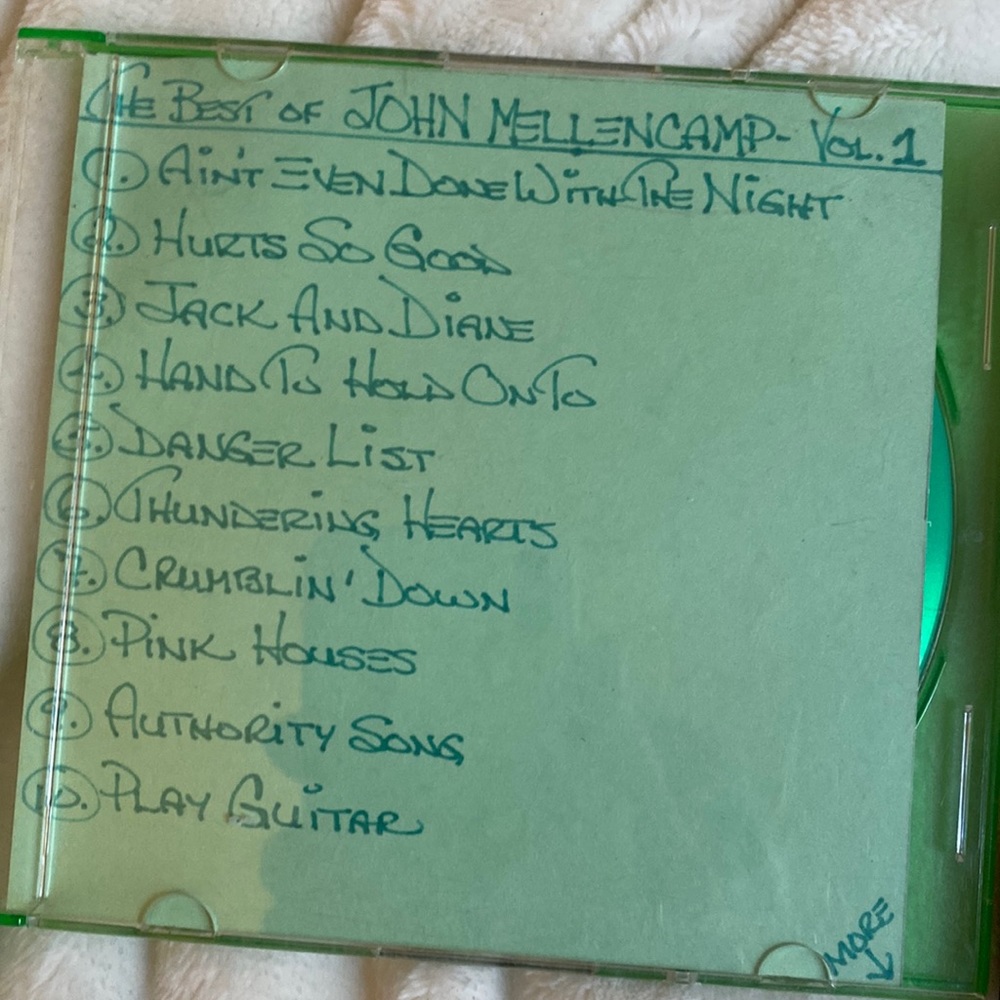 THE BEST OF JOHN MELLENCAMP- VOL. 1
1. AIN'T EVEN DONE WITH THE NIGHT
2. HURTS SO GOOD
3. JACK AND DIANE
4. HAND TO HOLD ON TO
5. DANGER LIST
6. THUNDERING HEARTS
7. CRUMBLIN' DOWN
8. PINK HOUSES
9. AUTHORITY SONG
10. PLAY GUITAR
MORE ↓